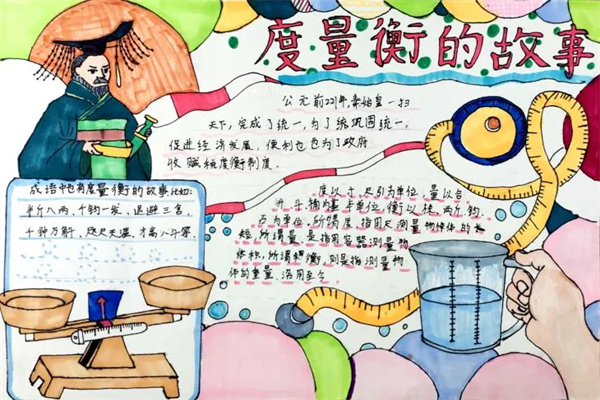 度量衡的故事
公元前221年,秦始皇一扫
天下,完成了统一,为了统巩固统一,
促进经济发展,便利也也为了政府
收赋税度衡制度.
成语中也有度量衡的故事比如:
半斤八两,千钧一发,退避三舍,
千钟万斛,咫尺天涯,才高八斗等
度以寸,尺引为单位,量以合
升,斗桶为基本单位,衡以铢,两斤,钧,
石为单位,所谓度,指用尺测量物体的长
短,所谓量,是指用容器测量物
体积,所谓衡,则是指测量物
体的重量,沿用至今.